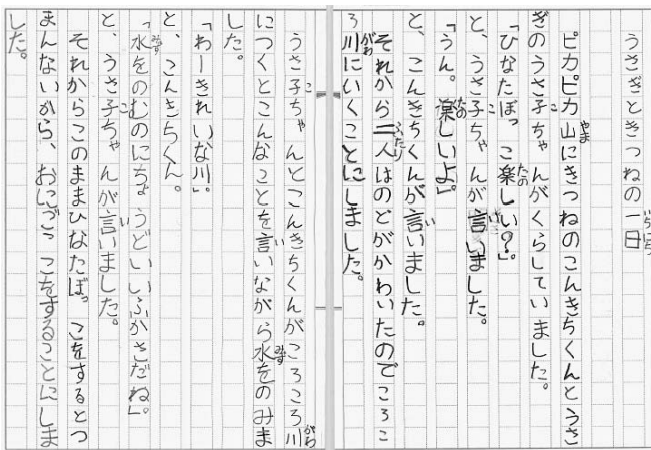 うさぎときつねの一日
ピカピカ山にきつねのこんきちくんとうさ
ぎのうさ子ちゃんがくらしていました。
「ひなたぼっこ楽しい?」。
と、うさ子ちゃんが言いました。
「うん。楽しいよ」。
と、こんきちくんが言いました。
それから二人はのどがかわいたのでころこ
ろ川にいくことにしました。
うさ子ちゃんとこんきちくんがころころ川
につくとこんなことを言いながら水をのみま
した。
「わーきれいな川」。
と、こんきちくん。
「水をのむのにちょうどいいふかさだね」。
と、うさ子ちゃんが言いました。
それからこのままひなたぼっこをするとつ
まんないから、おにごっこをすることにしま
した。